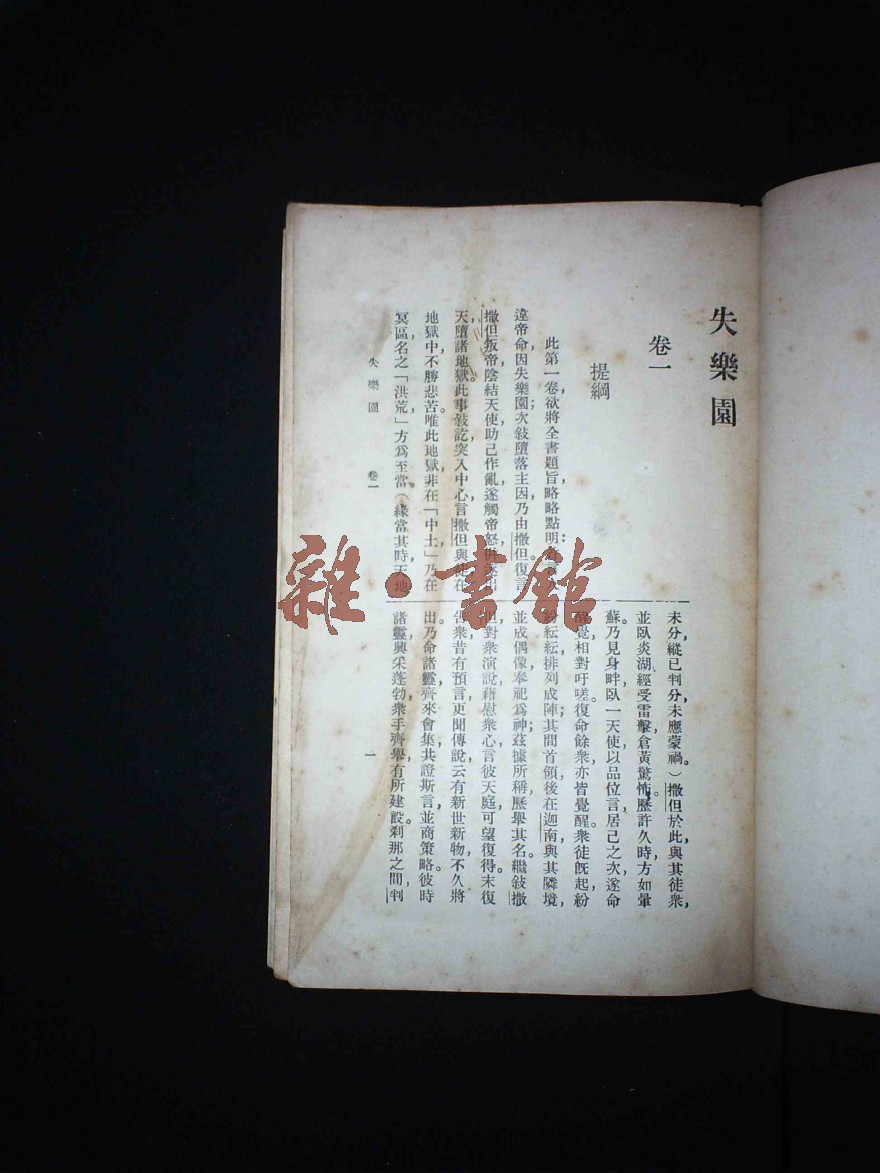 失樂園
卷一
提綱
此第一卷欲將全書題旨略略點明：
違帝命，因失樂園；次敍墮落主因，乃由撒但。復言
撒但叛帝，陰結天使，助己作亂，遂觸帝怒，
天，墮諸地獄。此事敍訖，突入中心，言撒但與徒在
地獄中，不勝悲苦。唯此地獄，非在「中土」，乃在
冥區，名之「洪荒」，方爲至當。（緣當其時，天地
未分，縱已判分，未應蒙禍。）撒但於此，與其徒衆，
並臥炎湖，經受雷擊，倉黃驚怖。歷許久時，方如暈
蘇，乃見身畔，臥一天使，以品位言，居己之次，遂命
醒覺，相對吁嗟。復命餘衆，亦皆覺醒。衆徒旣起，紛
紛紜紜，排列成陣；其間首領，後在迦南，與其隣境，
並成偶像，奉祀爲神；茲據所稱，歷舉其名。繼敍撒
但，對衆演說，藉慰衆心，言彼天庭，可望復得。末復
告衆，昔有預言，更聞傳說，云有新世新物，不久將
出。乃命諸靈，齊來會集，共證斯言，並商策略。彼時
諸靈，興采蓬勃，衆手齊舉，有所建設。刹那之間，判
失樂園 卷一
一
雜·書館